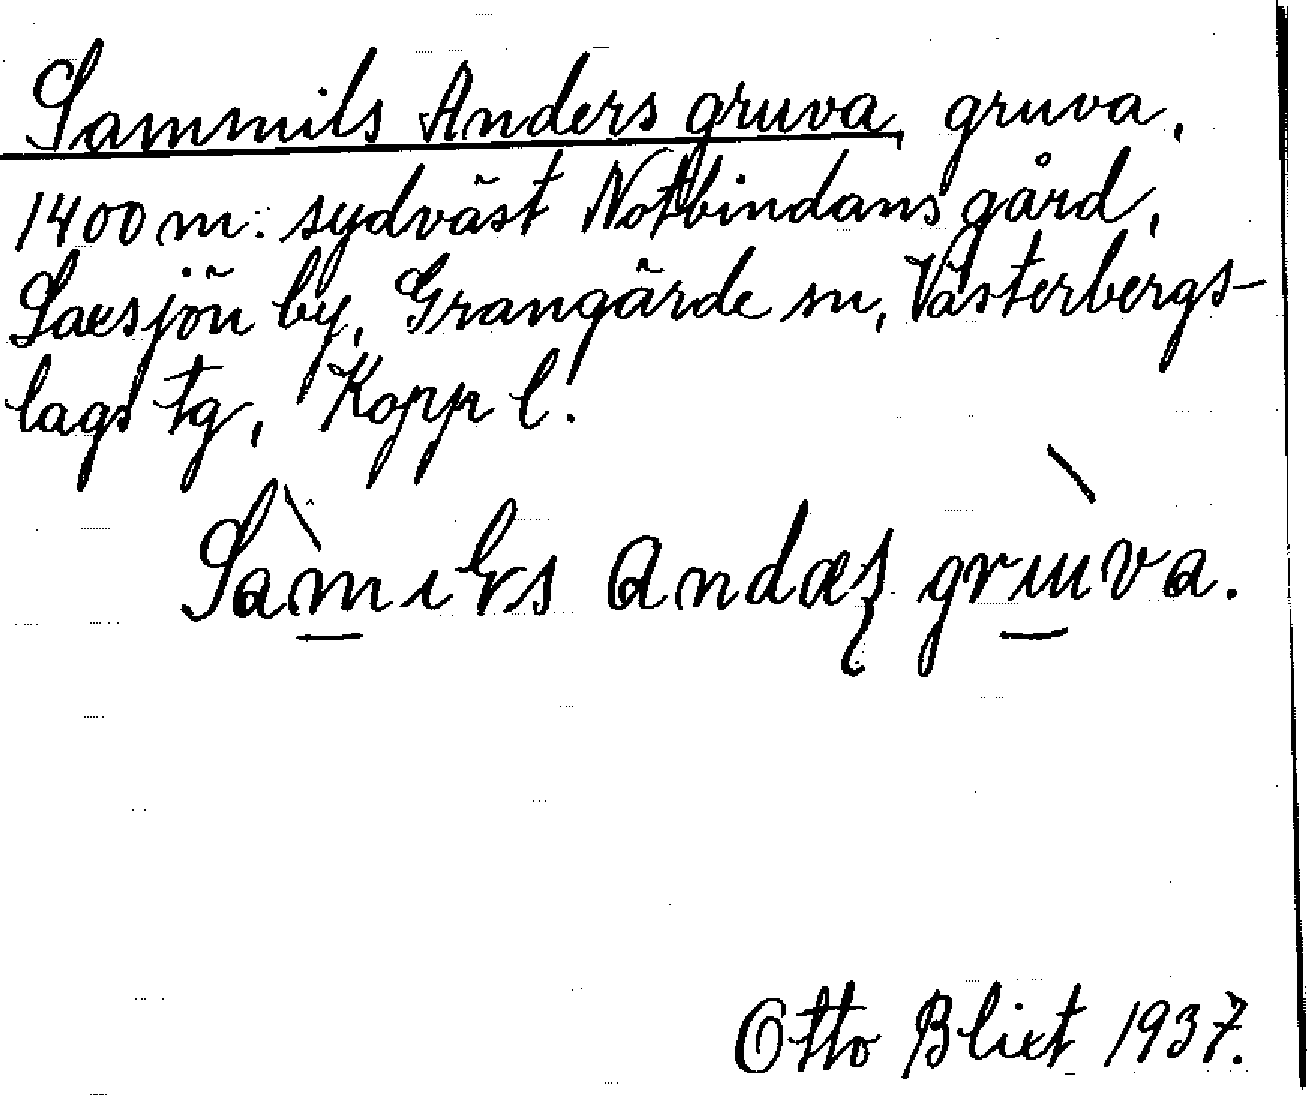 Sammils Anders gruva, gruva,
1400 m. sydväst Notbindans gård,
Saxsjön by, Grangärde sn, Västerbergs-
lags tg, Kopp l.
Samils Andæʂ gruva.
Otto Blixt 1937.